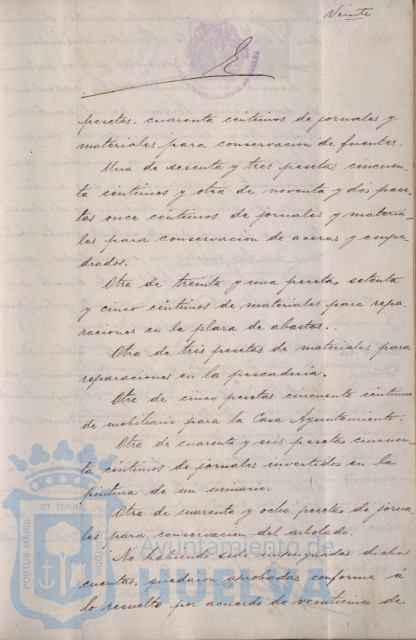 Veinte
pesetas, cuarenta céntimos de jornales y
materiales para conservacion de fuentes.
Una de sesenta y tres pesetas cincuen-
ta céntimos y otra de noventa y dos pese-
tas once céntimos de jornales y materia-
les para conservacion de aceras y empe-
drados.
Otra de treinta y una pesetas, setenta
y cinco céntimos de materiales para repa-
raciones en la plaza de abastos.
Otra de tres pesetas de materiales para
reparaciones en la pescadería.
Otra de cinco pesetas cincuenta céntimos
de mobiliario para la Casa Ayuntamiento.
Otra de cuarenta y seis pesetas cincuen-
ta céntimos de jornales invertidos en la
pintura de un urinario.
Otra de cuarenta y ocho pesetas de jorna-
les para conservacion del arbolado.
No habiendo sido impugnadas dichas
cuentas, quedaron aprobadas conforme á
lo resuelto por acuerdo de veinticinco de
PORTUS MARIS ET TERRAE CUSTODIA
Ayuntamiento de
HUELVA